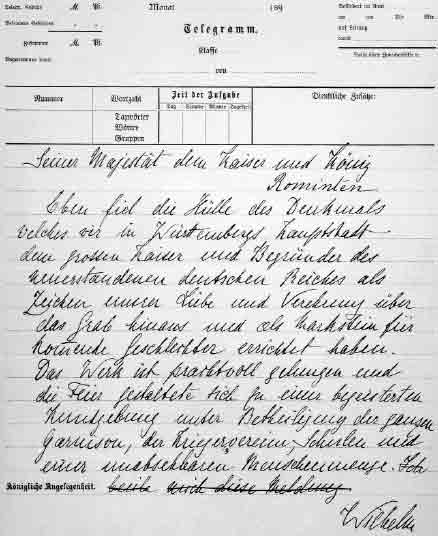 Telegramm.
Monat
Klasse
von
Nummer
Wortzahl
Zeit der Aufgabe
Dienstliche Zusätze:
Tag Stunde Minute
Taxwörter
Wörter
Gruppen
Seiner Majestät dem Kaiser und König
Rominten
Eben fiel die Hülle des Denkmals
welches wir in Württembergs Hauptstadt
dem grossen Kaiser und Begründer des
neuerstandenen deutschen Reiches als
Zeichen unsrer Liebe und Verehrung über
das Grab hinaus und als Markstein für
kommende Geschlechter errichtet haben.
Das Werk ist prachtvoll gelungen und
die Feier gestaltete sich zu einer begeisterten
Kundgebung unter Betheiligung der ganzen
Garnison, der Kriegervereine, Schulen und
einer unabsehbaren Menschenmenge. Ich
Königliche Angelegenheit. beeile mich diese Meldung
Wilhelm